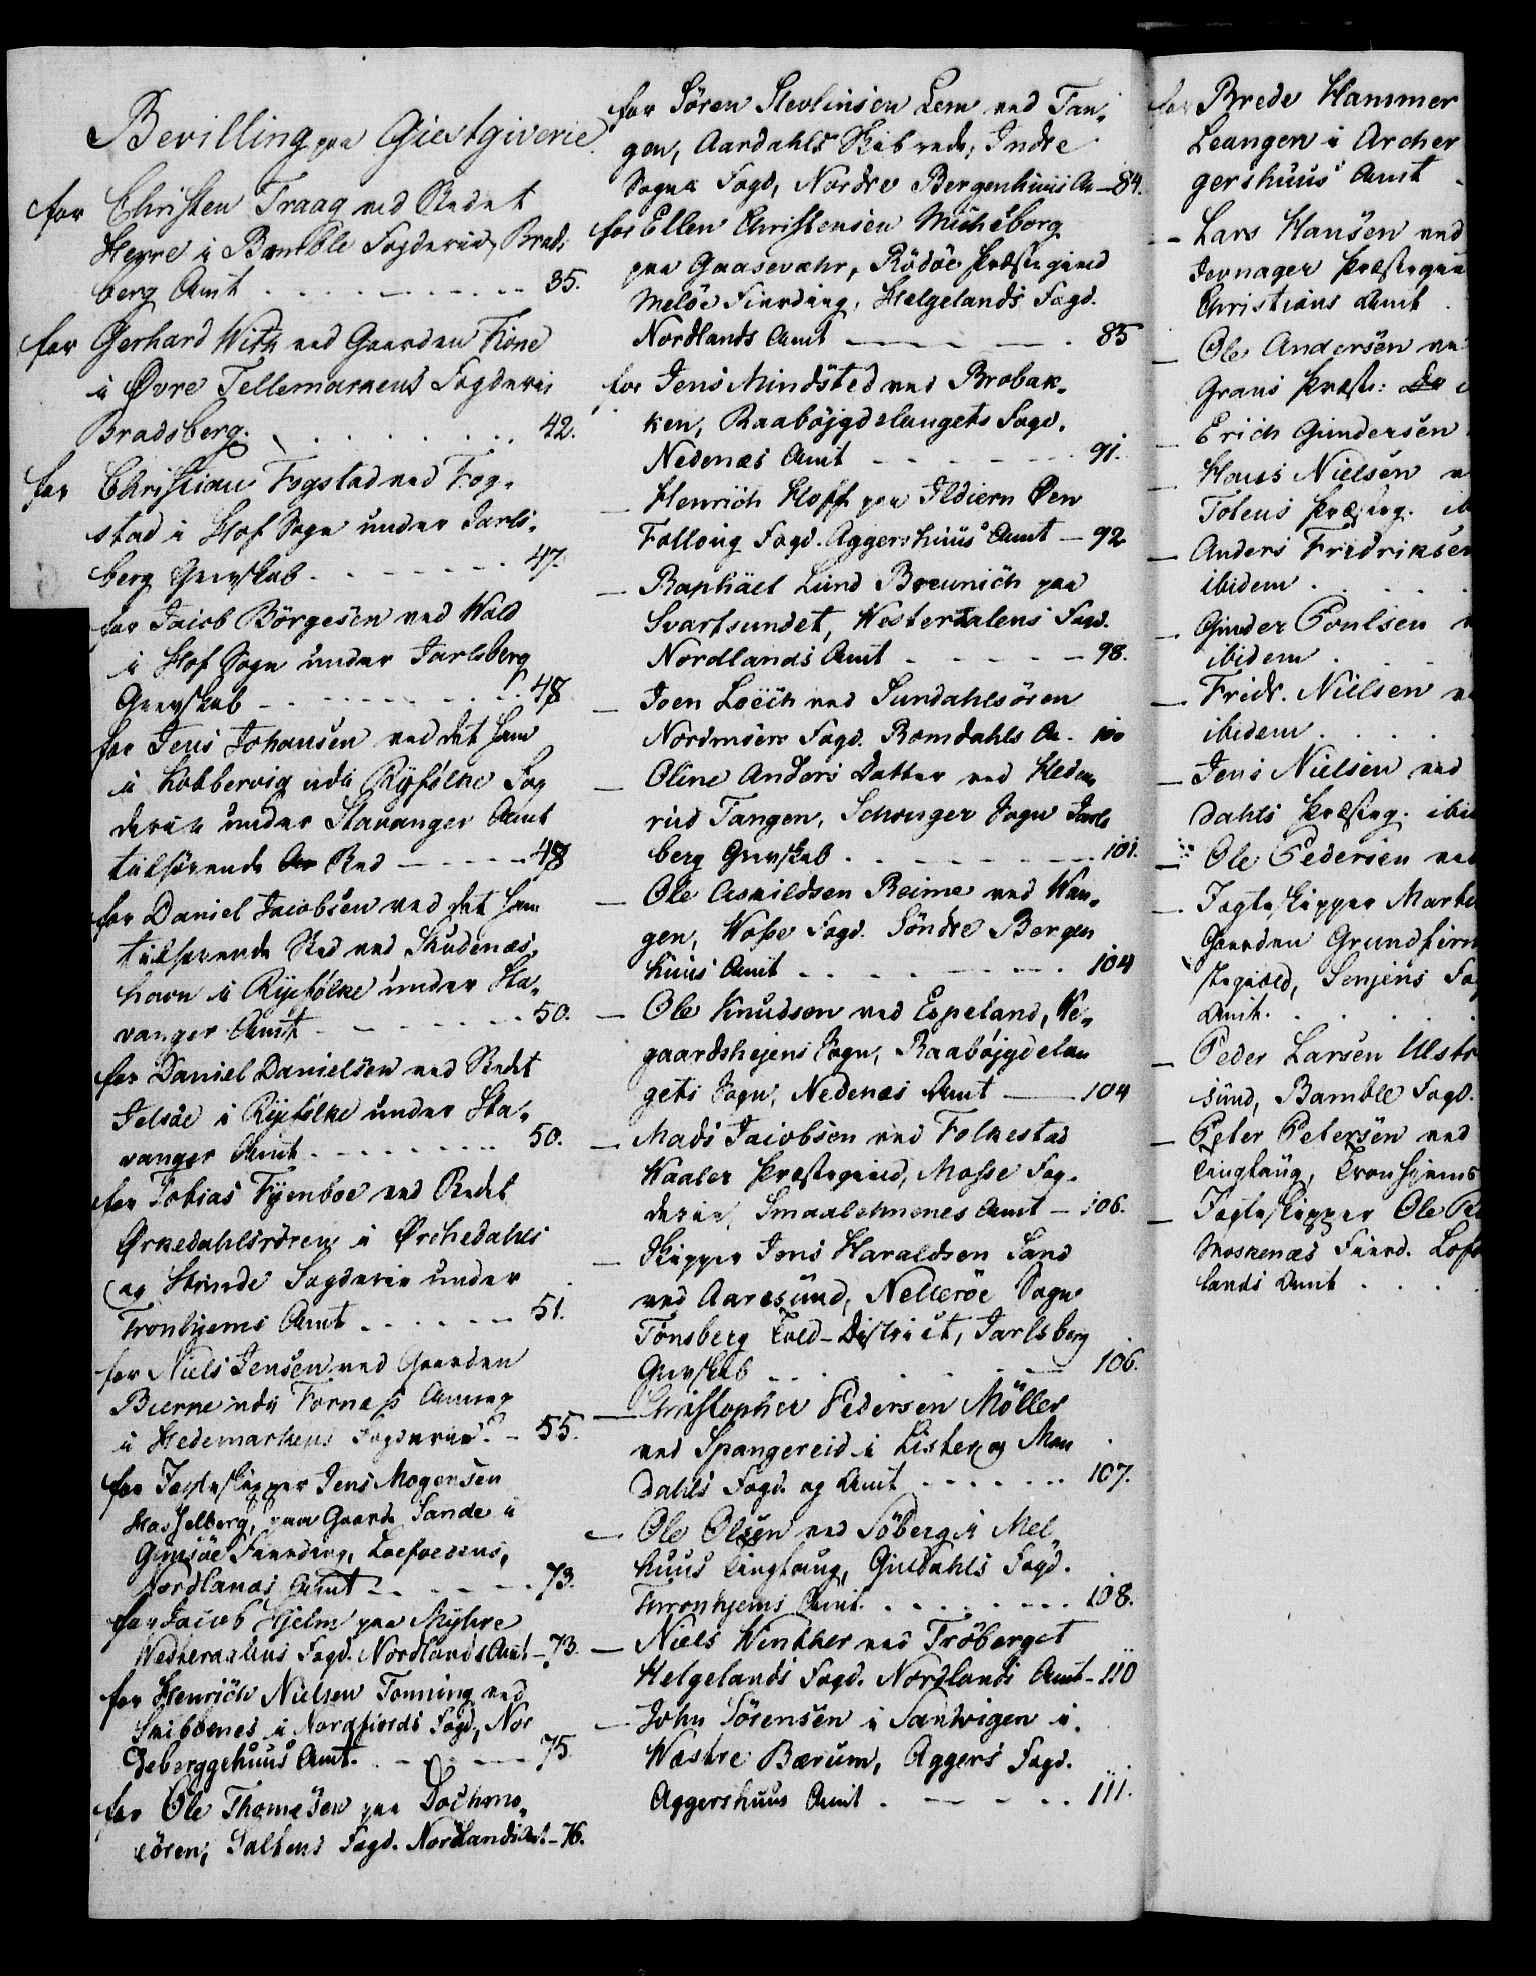 Bevilling paa Giestgiverie
for Christen Traag ved Stedet
Herre i Bamble Fogderie, Brads
berg Amt 35.
for Gerhard With ved Gaarden Fione
i Øvre Tellemarkens Fogderie
Bradsberg. 42.
for Christian Fogstad ved Fog-
stad i Hof Sogn under Jarls-
berg Grevskab 47.
for Jacob Börgesen ved Wold
i Hof Sogn under Jarlsberg
Grevskab 48
for Jens Johansen ved det ham
i Kobbervig udi Ryfölke Fog
derie under Stavanger Amt
tilhörende Sted 48
for Daniel Jacobsen ved det ham
tilhörende Sted ved Skudenæs-
havn i Ryefölke under Sta-
vanger Amt 50.
for Daniel Danielsen ved Stedet
Jelsöe i Ryefölke under Sta-
vanger Amt 50.
for Tobias Fyenboe ved Stedet
Ørkedahlsören i Ørchedahls
og Strinde Fogderie under
Tronhjems Amt 51.
for Niels Jensen ved Gaarden
Bierne udi Fornæs Annex
i Hedemarkens Fogderie 55.
for Jagteskipper Jens Mogensen
Hasselberg, paa Gaard Sande i
Gimsöe Fierding, Loefoedens,
Nordlands Amt 73.
for Jacob Hjelm paa Myhre
Westeraalens Fogd. Nordlands Amt 73.
for Henrich Nielsen Tonning ved
Skibbenes i Nordfiords Fogd, Nor
dreberggehuus Amt. 75.
for Ole Thomesen paa Dochmo-
eören, Saltens Fogd. Nordlands Amt 76.
for Sören Stevlinsen Lem ved Tan-
gen, Aardahls Skibrede, Indre
Sogns Fogd, Nordre Bergenhuus A 84.
for Ellen Christensen Micheborg
paa Gaasevahr, Rödöe Præstegield
Melöe Fierding, Helgelands Fogd.
Nordlands Amt 85
for Jens Mindsted ved Brobak-
ken, Raabøjgdelaugets Fogd.
Nedenæs Amt 91.
— Henrich Hoff paa Ildiern Øen
Folloug Fogd. Aggershuus Amt 92
— Raphäel Lund Breunich paa
Svartsundet, Westerdalens Fogd.
Nordlands Amt 98.
— Joen Loëch ved Sundahlsören
Nordmörs Fogd. Romdahls A. 100
— Oline Anders Datter ved Heden
rud Tangen, Schouger Sogn Jarls
berg Grevskab 101.
— Ole Askildsen Reime ved Wan-
gen, Wosse Fogd. Söndre Bergen
huus Amt 104
— Ole Knudsen ved Espeland, We-
gaardshejens Sogn, Raabøjgdelau
gets Sogn, Nedenæs Amt 104
— Mads Jacobsen ved Folkestad
Waaler Præstegield, Mosse Fog-
derie, Smaalehnenes Amt 106.
— Skipper Jens Haraldsen Sand
ved Aarösund, Nøtterøe Sogn
Tönsberg Told-District, Jarlsberg
Grevskab 106.
— Christopher Pedersen Möller
ved Spangereid i Lister og Man
dahls Fogd. og Amt 107.
— Ole Olsen ved Söberg i Mel-
huus Tinglaug, Guldahls Fogd.
Tronhjems Amt. 108.
— Niels Winther ved Tröberget
Helgelands Fogd. Nordlands Amt 110
— John Sörensen i Sandvigen i
Westre Bærum, Aggers Fogd.
Aggershuus Amt 111.
for Brede Hammer
Leangen i Archer
gershuus Amt
— Lars Hansen ved
Jevnager Præstegie
Christians Amt
— Ole Andersen ve
Grans Præste:
— Erich Gundersen
— Hans Nielsen v
Totens Præsteg. ib
— Anders Fredriksen
ibidem
— Gunder Poulsen v
ibidem
— Fridr. Nielsen v
ibidem
— Jens Nielsen ved
Dahls Præsteg. ibi
— Ole Pedersen ved
— Jagteskipper Marte
Gaarden Grundfirn
stegield, Senjens Fo
Amt.
— Peder Larsen Ulstr
sund, Bamble Fogd.
— Peter Petersen ved
Tinglaug, Tronhjems
— Jagteskipper Ole
Moskenæs Fierd. Lofo
lands Amt